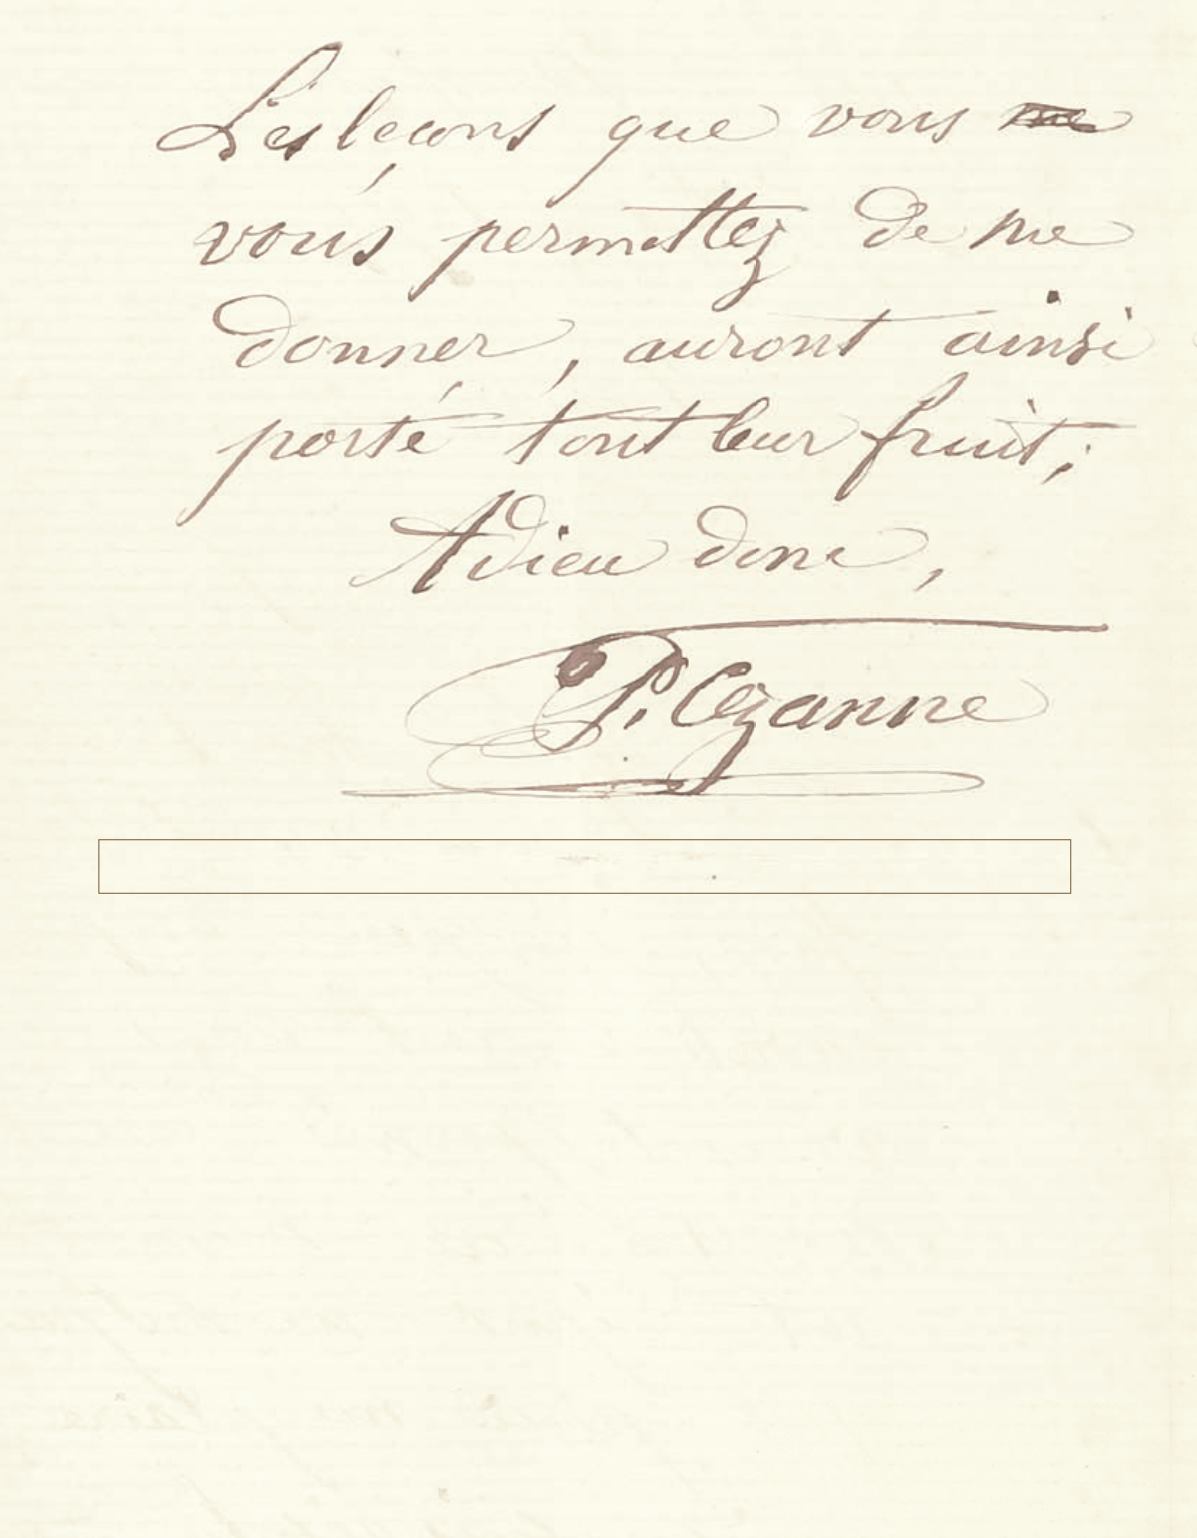 Les leçons que vous me
vous permettez de me
donner, auront ainsi
porté tout leur fruit;
Adieu donc,
P. Cezanne